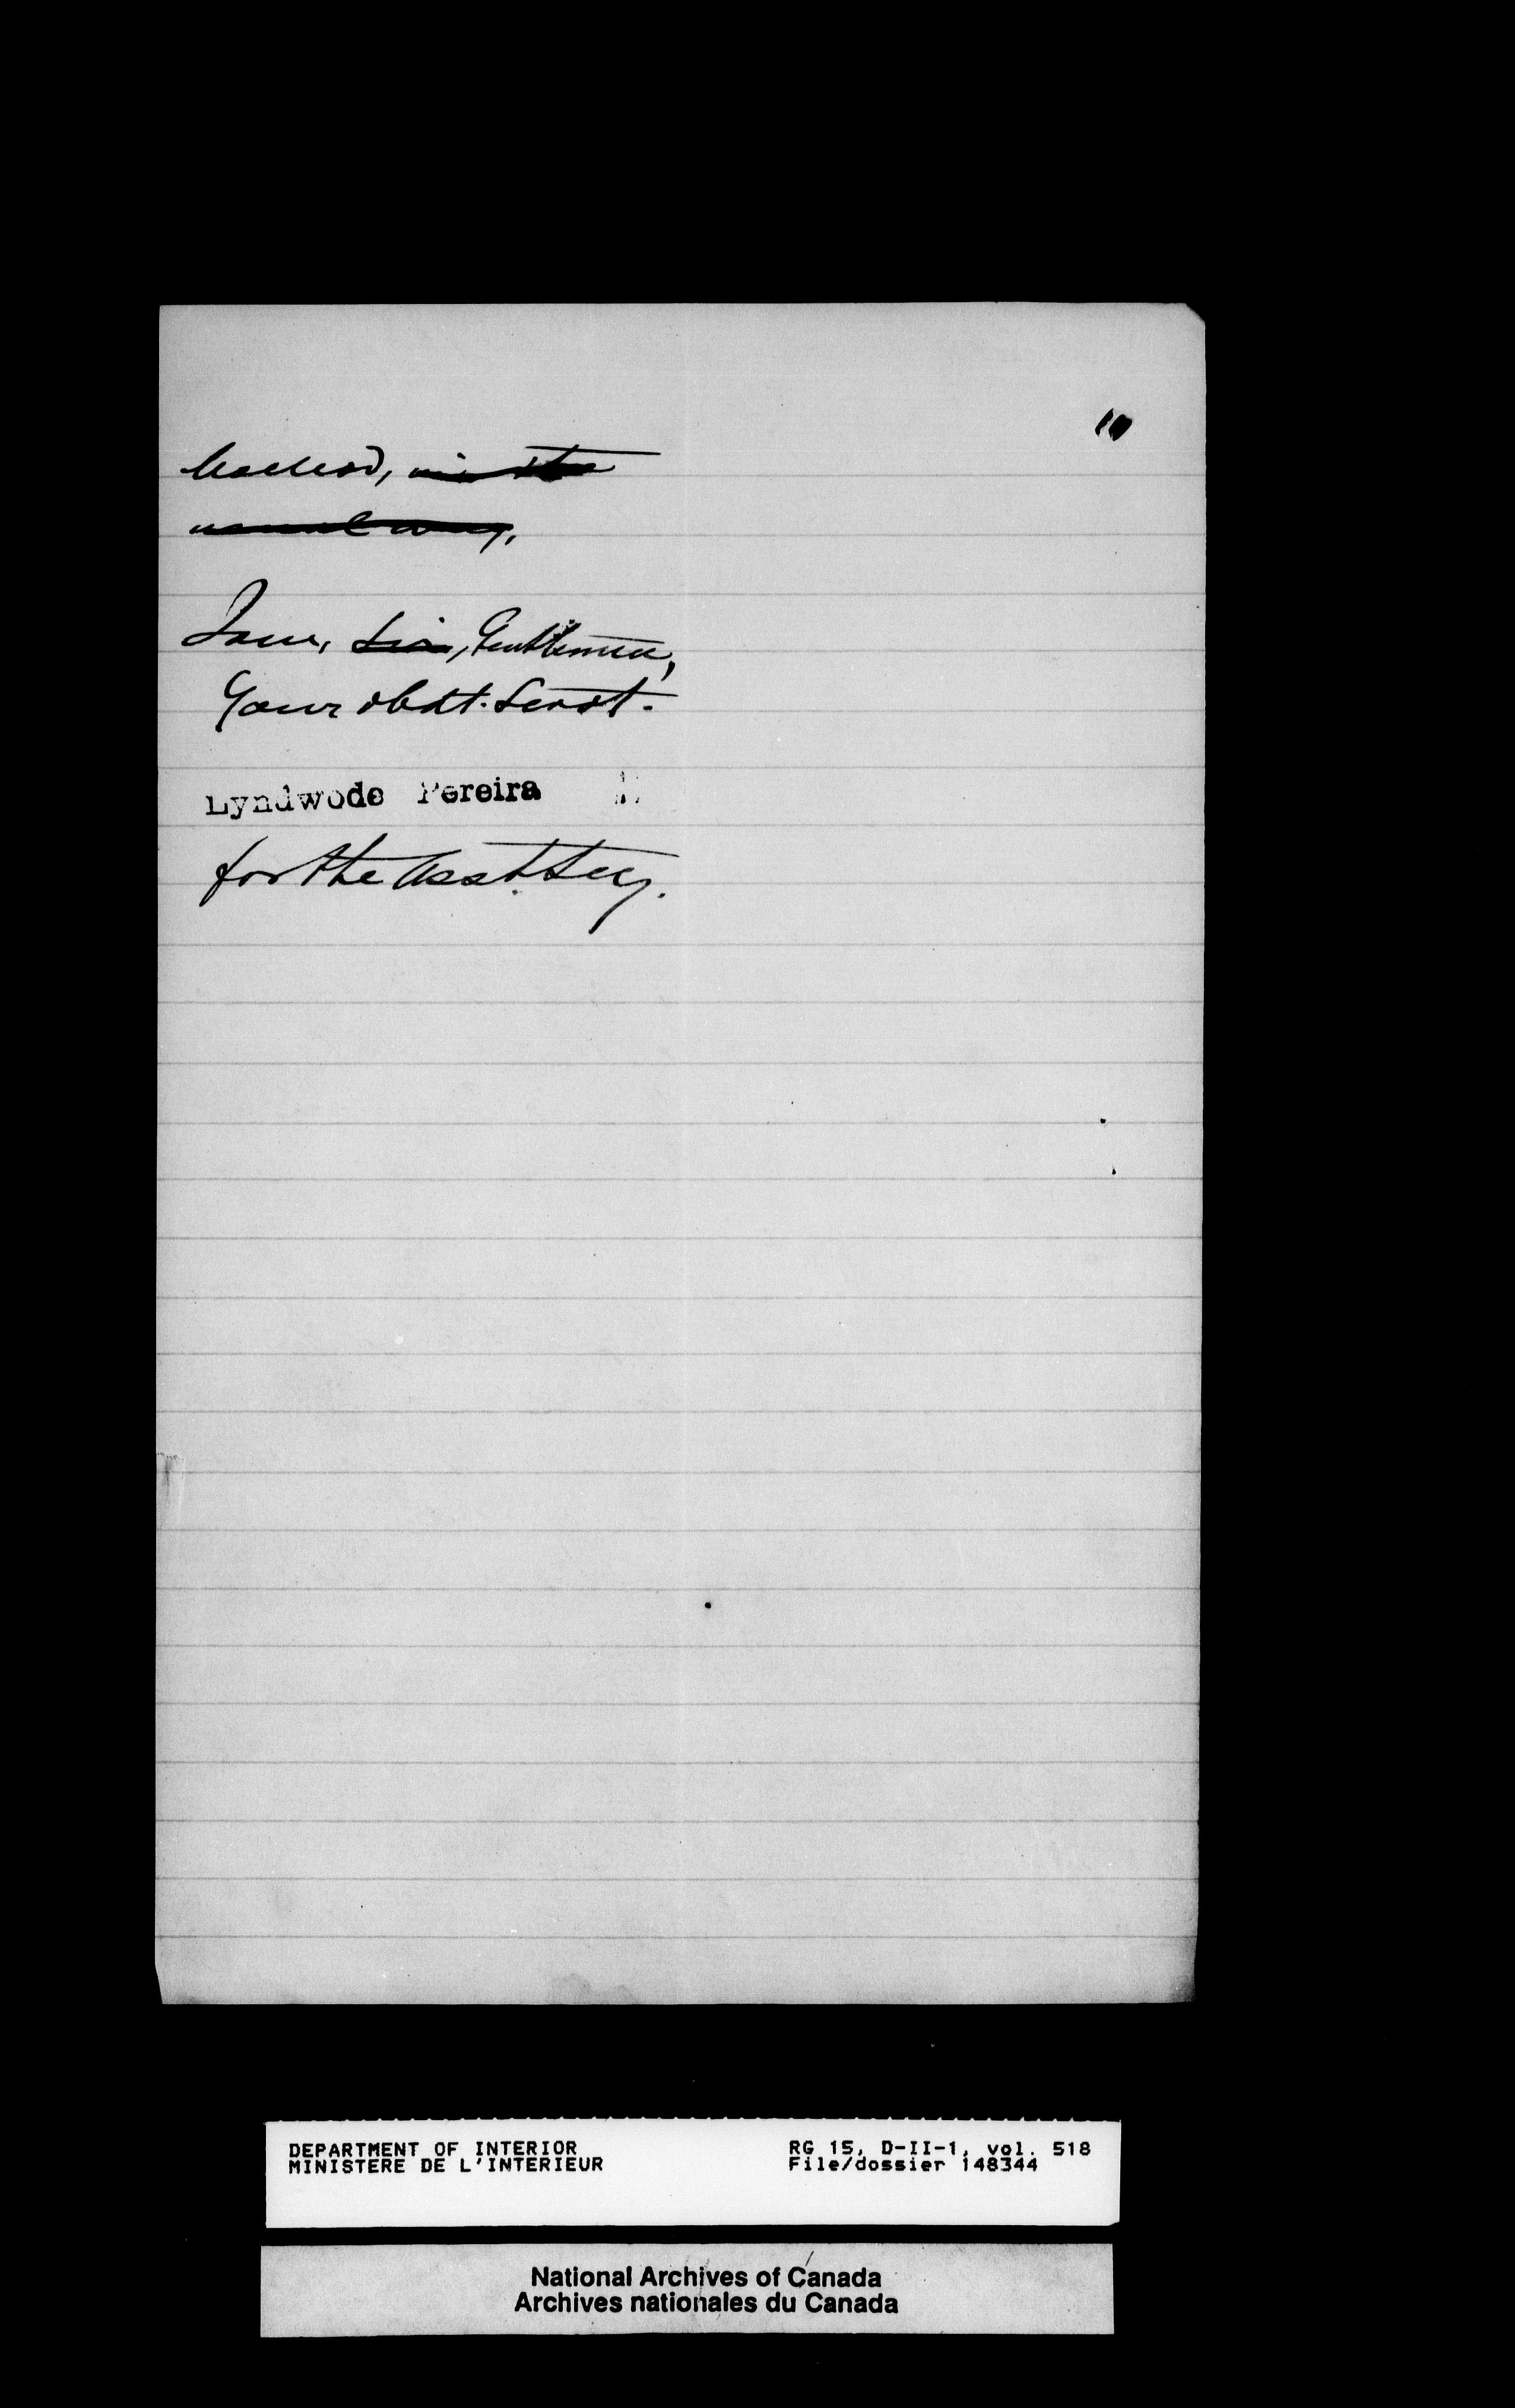 10
Macleod, in the
usual way.
I am, Sir, Gentlemen,
Your obdt. Servt.
Lyndwode Pereira
for the Asst Secy.
DEPARTMENT OF INTERIOR RG 15, D-II-1, vol. 518
MINISTERE DE L'INTERIEUR File/dossier 148344
National Archives of Canada
Archives nationales du Canada